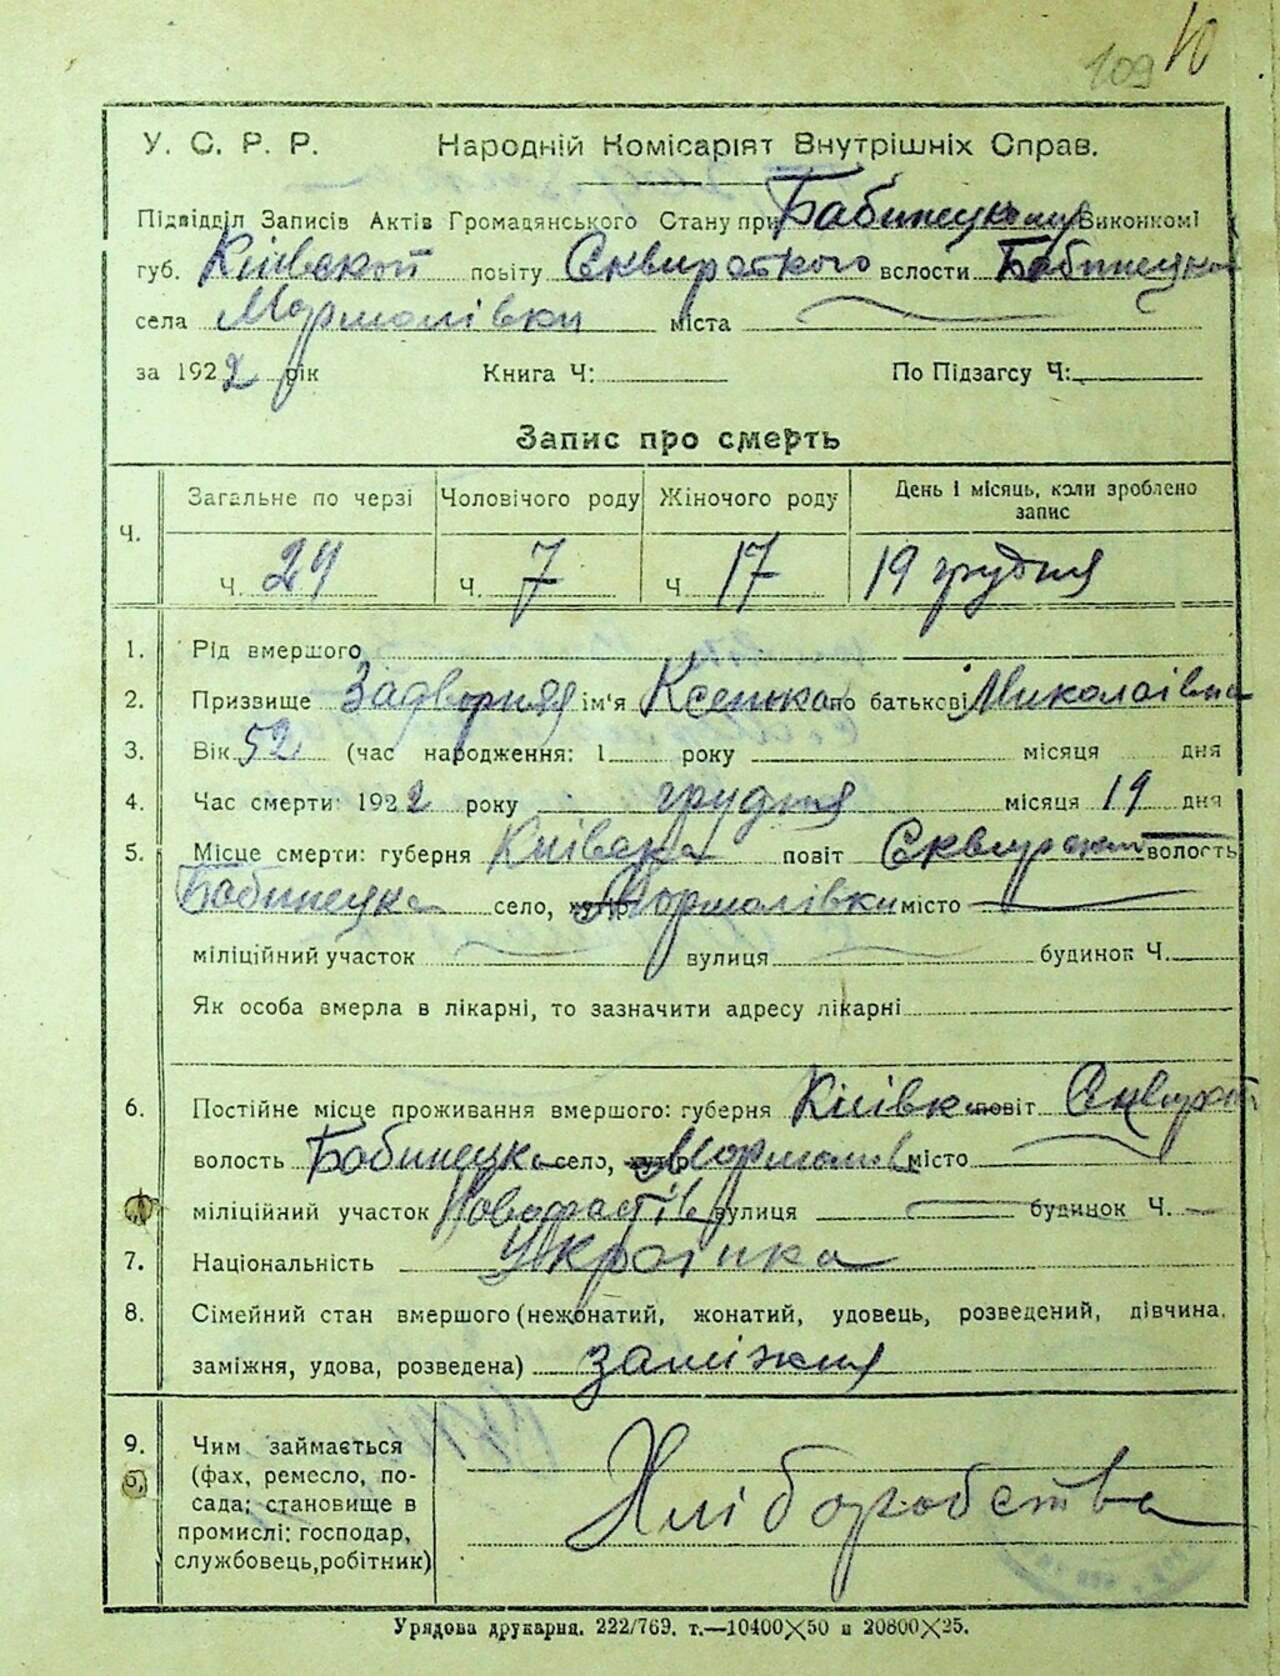 109 10
У. С. Р. Р. Народній Комісаріят Внутрішніх Справ.
Підвідділ Записів Актів Громадянського Стану при Бабинецкому Виконкомі
губ. Київской повіту Сквирского волости Бабинецкой
села Мормолівки міста
за 1922 рік Книга Ч: По Підзагсу Ч:
Запис про смерть
Ч. Загальне по черзі Чоловічого роду Жіночого роду День і місяць, коли зроблено запис
Ч. 24 Ч. 7 Ч. 17 19 грудня
1. Рід вмершого
2. Призвище Задворня ім'я Ксенка по батькові Миколаівна
3. Вік 52 (час народження: 1 року місяця дня
4. Час смерти: 1922 року грудня місяця 19 дня
5. Місце смерти: губерня Київска повіт волость
Бабинецка село, Мормолівки місто
міліційний участок вулиця будинок Ч.
Як особа вмерла в лікарні, то зазначити адресу лікарні
6. Постійне місце проживання вмершого: губерня Київска повіт
волость Бабинецка село, Мормолів місто
міліційний участок Новофастів вулиця будинок Ч.
7. Національність Украінка
8. Сімейний стан вмершого (нежонатий, жонатий, удовець, розведений, дівчина,
заміжня, удова, розведена) заміжня
9. Чим займається
б, (фах, ремесло, по-
сада; становище в
промислі: господар,
службовець, робітник)
Хліборобства
Урядова друкарня. 222/769. т.—10400×50 и 20800×25.